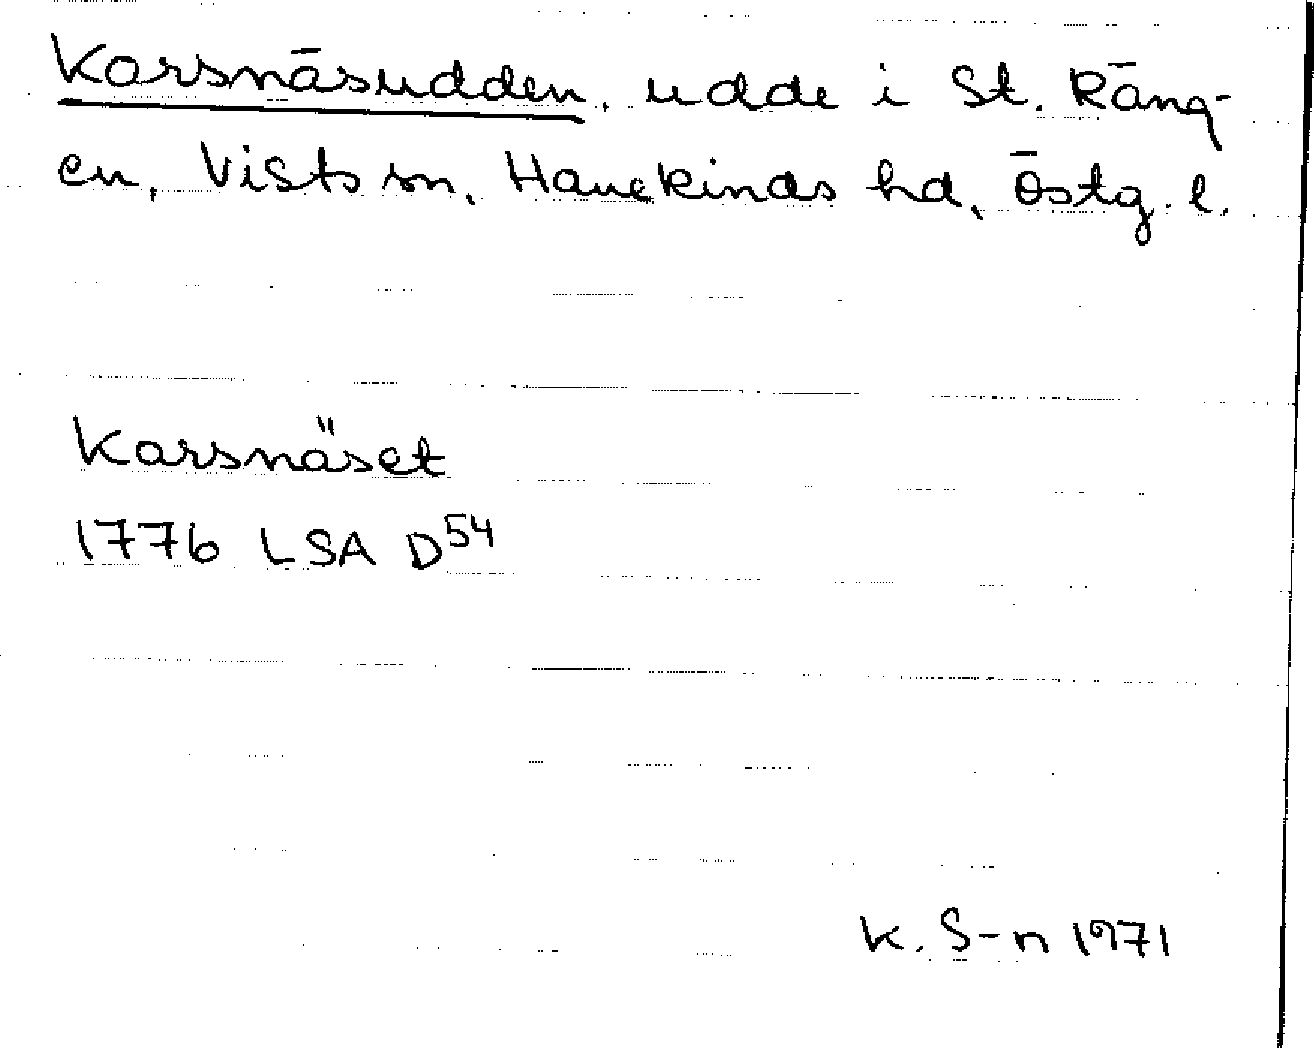 Karsnäsudden, udde i St. Räng-
en, Vists sn, Hanekinds hd, Östg. l.
Karsnäset
1776 LSA D54
K. S-n 1971